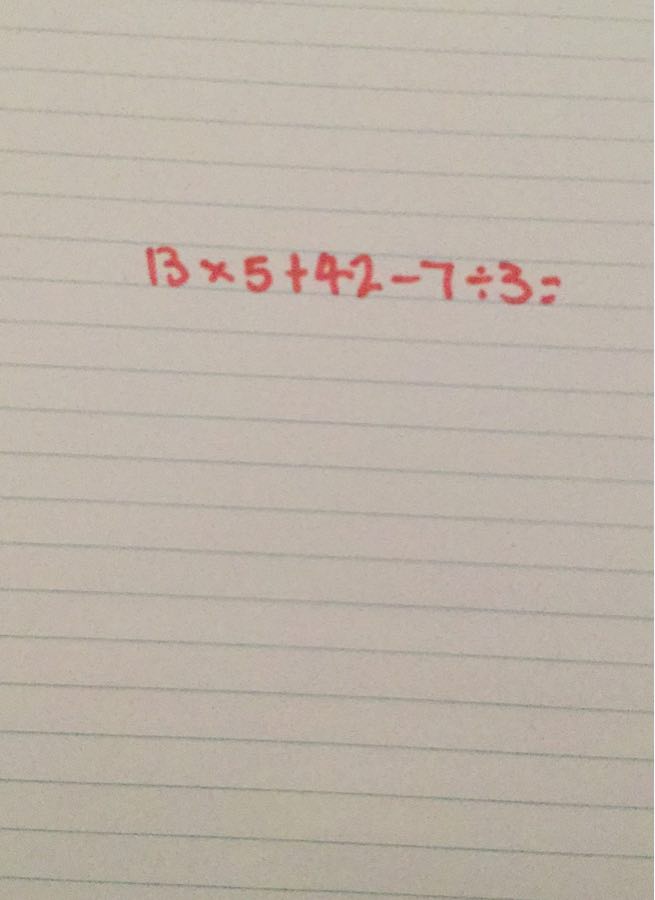 13 × 5 + 42 - 7 ÷ 3 =